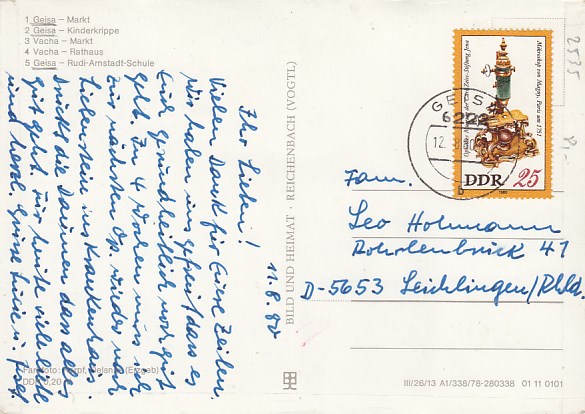 1 Geisa – Markt
2 Geisa – Kinderkrippe
3 Vacha – Markt
4 Vacha – Rathaus
5 Geisa – Rudi-Arnstadt-Schule
11.8.80
Ihr Lieben!
Vielen Dank für Eure Zeilen,
wir haben uns gefreut dass es
Euch gesundheitlich noch gut
geht. In 4 Wochen muss ich
zur nächsten Op. wieder nach
Liebenstein ins Krankenhaus.
Drückt die Daumen dass alles
gut geht. Für heute viele liebe
und herzl. Grüsse
BILD UND HEIMAT · REICHENBACH (VOGTL)
DDR 0,20
III/26/13 A1/338/78-280338 01 11 0101
Optisches Museum der Carl-Zeiss-Stiftung Jena
Mikroskop von Magny, Paris um 1751
DDR 25
1980
GEISA
6222
12.8.80
b
Fam.
Leo Hohmann
41
D-5653 Leichlingen/Rhld.
2535